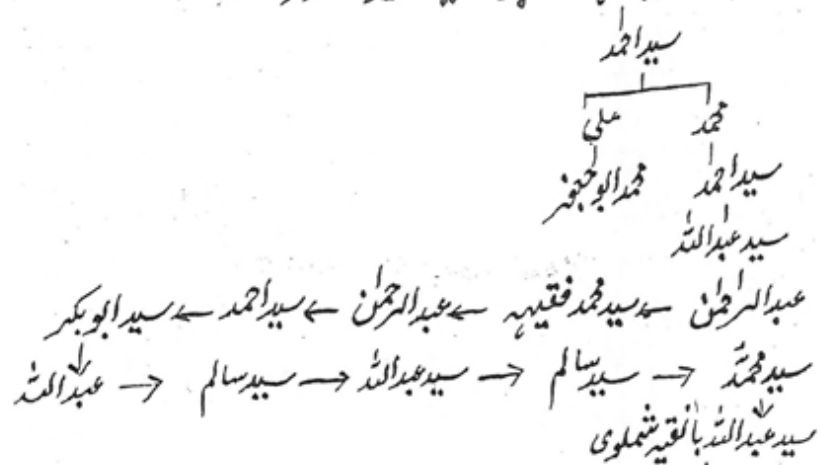 سید احمد
محمد علی
سید احمد محمد ابو جعفر
سید عبداللہ
عبدالرحمٰن ← سید محمد فقیہہ ← عبدالرحمٰن ← سید احمد ← سید ابوبکر
سید محمدؐ → سید سالم → سید عبداللہ → سید سالم → عبداللہ
سید عبداللہ بافقیہ شملوی